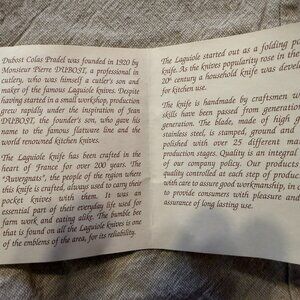 Dubost Colas Pradel was founded in 1920 by
Monsieur Pierre DUBOST, a professional in
cutlery, who was himself a cutler's son and
maker of the famous Laguiole knives. Despite
having started in a small workshop, production
grew rapidly under the inspiration of Jean
DUBOST, the founder's son, who gave his
name to the famous flatware line and the
world renowned kitchen knives.
The Laguiole knife has been crafted in the
heart of France for over 200 years. The
"Auvergnats", the people of the region where
this knife is crafted, always used to carry their
pocket knives with them. It was an
essential part of their everyday life used for
farm work and eating alike. The bumble bee
that is found on all the Laguiole knives is one
of the emblems of the area, for its reliability.
The Laguiole started out as a folding p
knife. As the knives popularity rose in the
20th century a household knife was devel
for kitchen use.
The knife is handmade by craftsmen w
skills have been passed from generation
generation. The blade, made of high g
stainless steel, is stamped, ground and
polished with over 25 different ma
production stages. Quality is an integral
of our company policy. Our products
quality controlled at each step of product
with care to assure good workmanship, in o
to provide consumers with pleasure and
assurance of long lasting use.